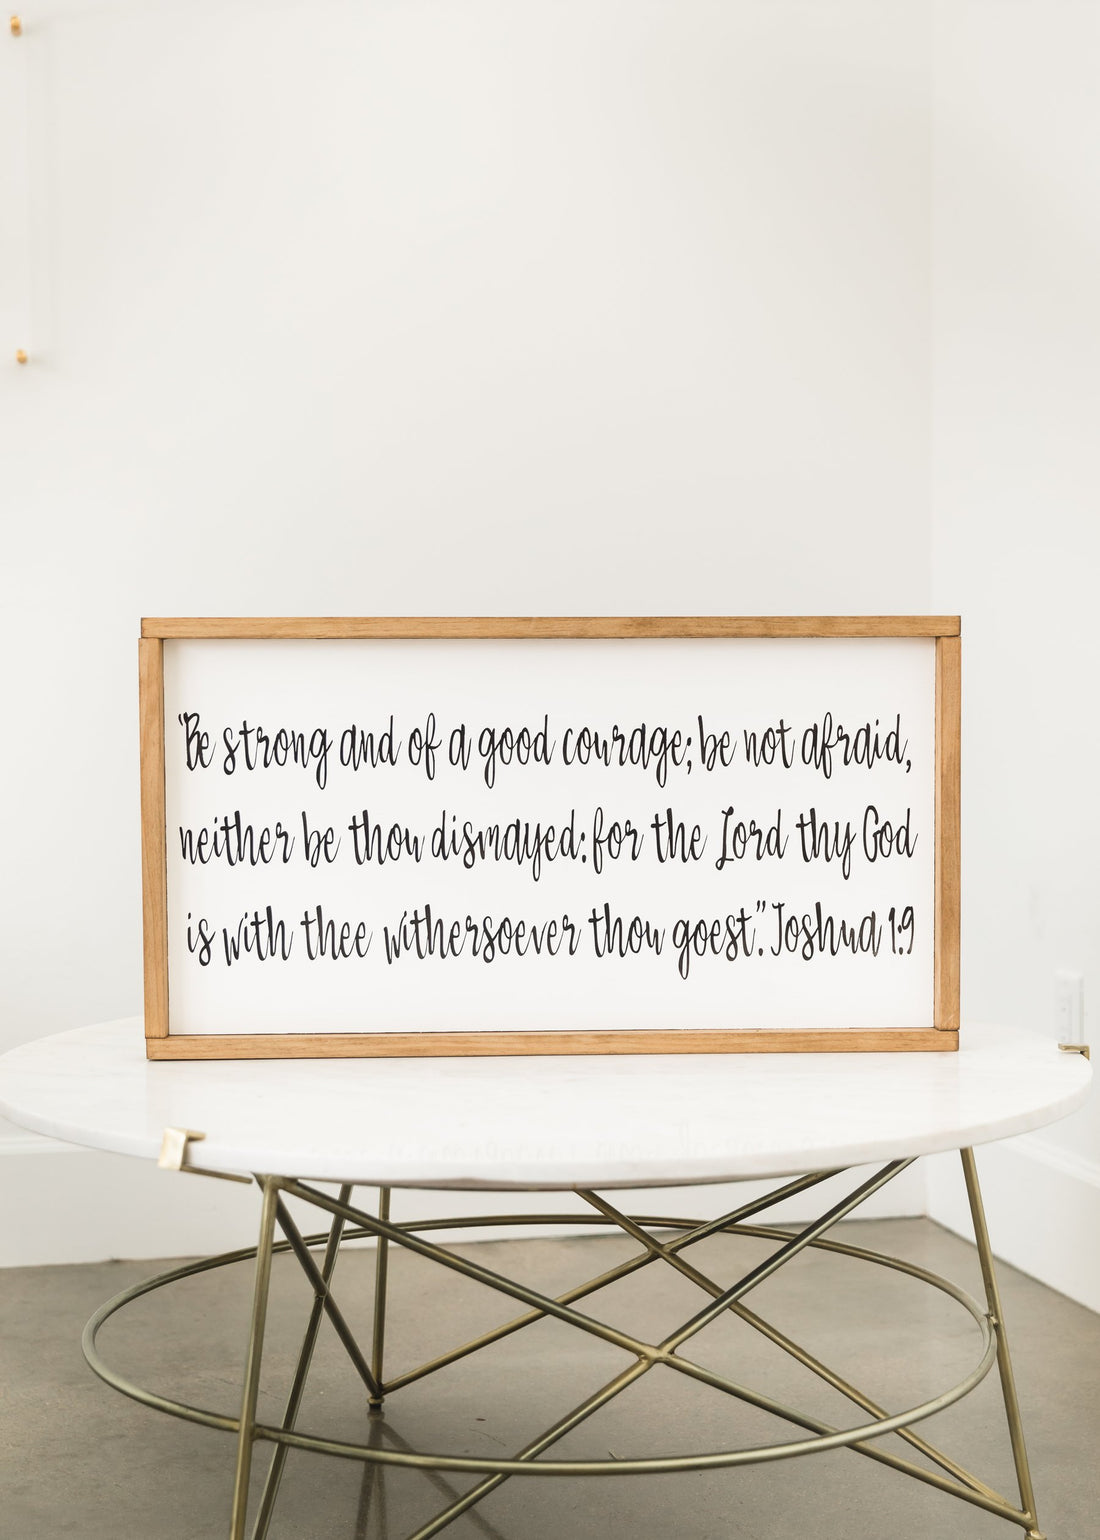 "Be strong and of a good courage; be not afraid,
neither be thou dismayed: for the Lord thy God
is with thee withersoever thou goest". Joshua 1:9